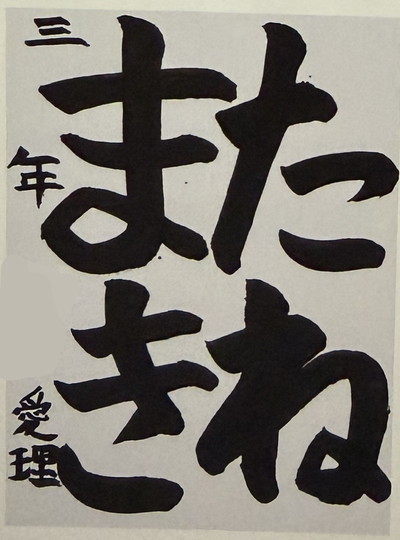 たね
まき
三年 愛理